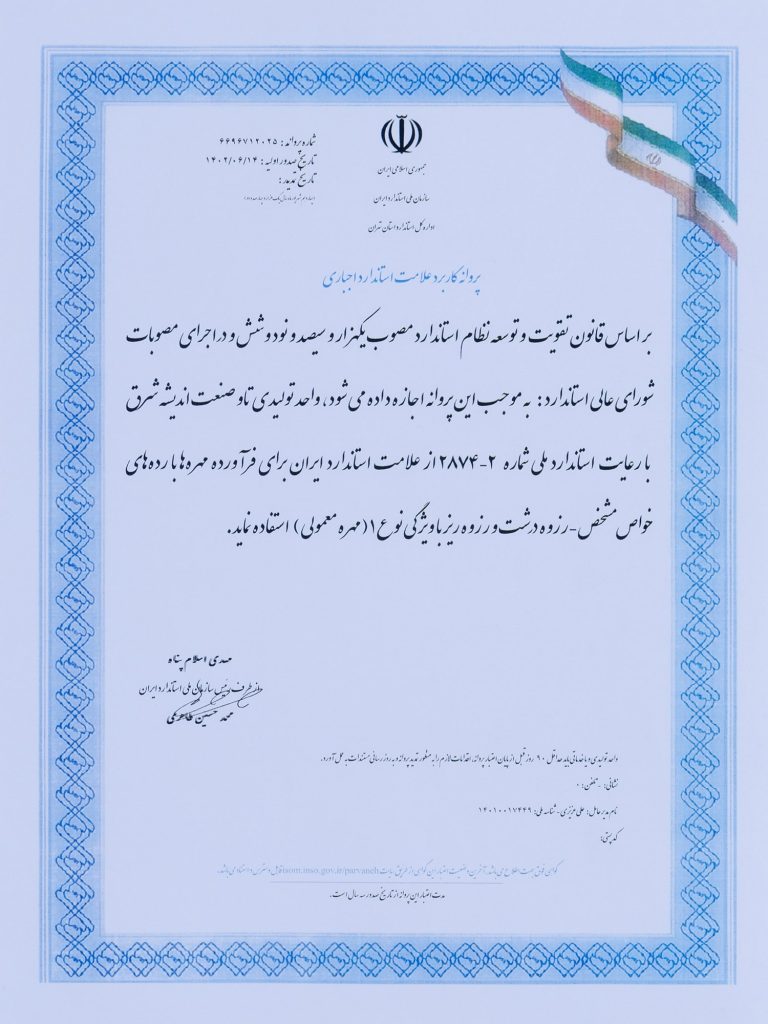 شماره پروانه: ۶۶۹۶۷۱۲۰۲۵
تاریخ صدور اولیه: ۱۴۰۲/۰۶/۱۴
تاریخ تمدید:
جمهوری اسلامی ایران
سازمان ملی استاندارد ایران
اداره کل استاندارد استان تهران
پروانه کاربرد علامت استاندارد اجباری
بر اساس قانون تقویت و توسعه نظام استاندارد مصوب یکهزار و سیصد و نود و شش و در اجرای مصوبات
شورای عالی استاندارد: به موجب این پروانه اجازه داده می شود، واحد تولیدی تاو صنعت اندیشه شرق
با رعایت استاندارد ملی شماره ۲-۲۸۷۴ از علامت استاندارد ایران برای فرآورده مهره ها با رده های
خواص مشخص-رزوه درشت و رزوه ریز با ویژگی نوع ۱(مهره معمولی) استفاده نماید.
مهدی اسلام پناه
از طرف رئیس سازمان ملی استاندارد ایران
محمد حسین
واحد تولیدی و یا خدماتی باید حداقل ۹۰ روز قبل از پایان اعتبار پروانه، اقدامات لازم را به منظور تمدید پروانه و به روز رسانی مستندات به عمل آورد.
نشانی: - تلفن: ۰
نام مدیرعامل: علی عزیزی - شناسه ملی: ۱۴۰۱۰۰۱۷۴۴۹
کد پستی:
گواهی فوق جهت اطلاع می باشد. آخرین وضعیت اعتبار این گواهی از طریق سایت isom.inso.gov.ir/parvaneh قابل دسترس و استنادی باشد.
مدت اعتبار این پروانه از تاریخ صدور سه سال است.